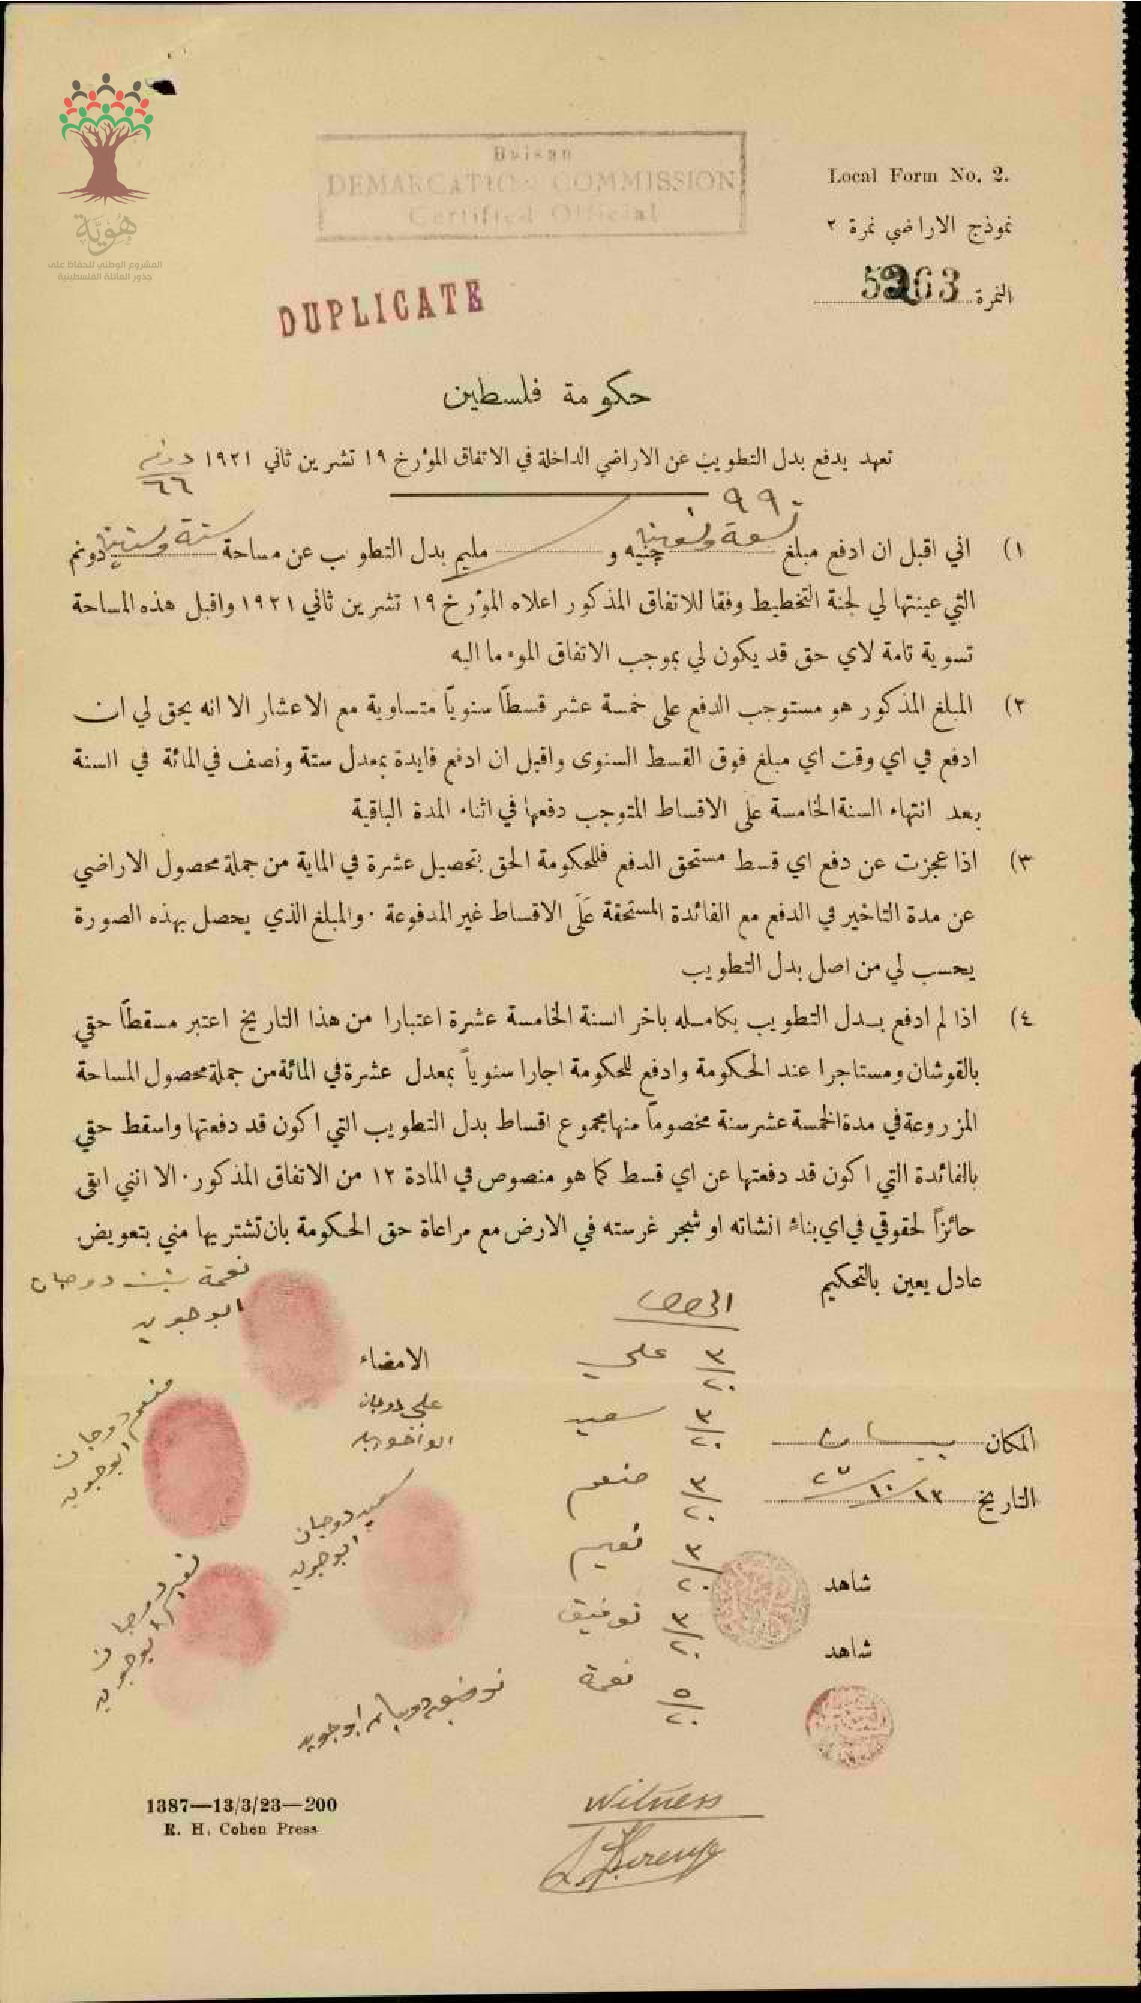 هُويَّة
المشروع الوطني للحفاظ على
جذور العائلة الفلسطينية
Beisan
DEMARCATION COMMISSION
Certified Official
Local Form No. 2.
نموذج الاراضي نمرة ٢
النمرة 5263
DUPLICATE
حكومة فلسطين
تعهد بدفع بدل التطويب عن الاراضي الداخلة في الاتفاق المؤرخ ١٩ تشرين ثاني ١٩٢١
دونم
٦٦
٩٩
١) اني اقبل ان ادفع مبلغ تسعة وتسعين جنيه و مليم بدل التطويب عن مساحة ستة وستين دونم
التي عينتها لي لجنة التخطيط وفقا للاتفاق المذكور اعلاه المؤرخ ١٩ تشرين ثاني ١٩٢١ واقبل هذه المساحة
تسوية تامة لاي حق قد يكون لي بموجب الاتفاق الموء ما اليه
٢) المبلغ المذكور هو مستوجب الدفع على خمسة عشر قسطاً سنوياً متساوية مع الاعشار الا انه يحق لي ان
ادفع في اي وقت اي مبلغ فوق القسط السنوى واقبل ان ادفع فايدة بمعدل ستة ونصف في المائة في السنة
بعد انتهاء السنة الخامسة على الاقساط المتوجب دفعها في اثناء المدة الباقية
٣) اذا عجزت عن دفع اي قسط مستحق الدفع فللحكومة الحق بتحصيل عشرة في الماية من جملة محصول الاراضي
عن مدة التاخير في الدفع مع الفائدة المستحقة عَلَى الاقساط غير المدفوعة . والمبلغ الذي يحصل بهذه الصورة
يحسب لي من اصل بدل التطويب
٤) اذا لم ادفع بدل التطويب بكامله باخر السنة الخامسة عشرة اعتبارا من هذا التاريخ اعتبر مسقطاً حقي
بالقوشان ومستاجرا عند الحكومة وادفع للحكومة اجارا سنوياً بمعدل عشرة في المائة من جملة محصول المساحة
المزروعة في مدة الخمسة عشر سنة مخصوماً منها مجموع اقساط بدل التطويب التي اكون قد دفعتها واسقط حقي
بالفائدة التي اكون قد دفعتها عن اي قسط كما هو منصوص في المادة ١٢ من الاتفاق المذكور . الا انني ابقى
حائزاً لحقوقي في اي بناء انشاته او شجر غرسته في الارض مع مراعاة حق الحكومة بان تشتريها مني بتعويض
عادل يعين بالتحكيم
نعمة بنت دوجان
ابو جويد
الحصص
٣/٢٠ علي
٣/٢٠ سعيد
٣/٢٠ منعم
٣/٢٠ نعيم
٣/٢٠ توفيق
٥/٢٠ نعمة
الامضاء
علي دوجان
منعم دوجان
ابو جويد
سعيد دوجان
ابو جويد
نعيم دوجان
ابو جويد
توفيق دوجان ابو جويد
المكان بيسان
التاريخ ١٣/١٠/٢٣
شاهد
شاهد
1387—13/3/23—200
R. H. Cohen Press
Witness